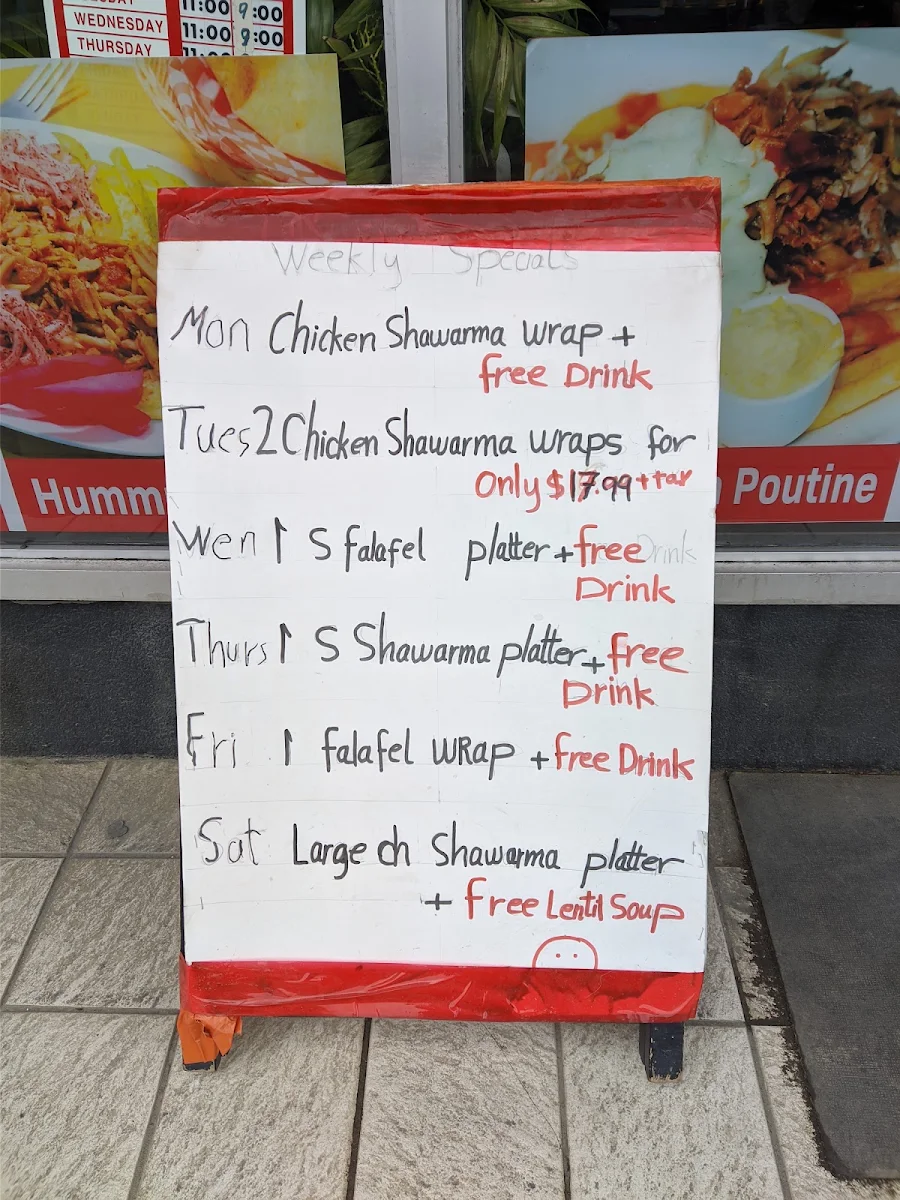 11:00 9:00
WEDNESDAY 11:00 9:00
THURSDAY 11:00 9:00
Weekly Specials
Mon Chicken Shawarma wrap +
free Drink
Tues 2 Chicken Shawarma wraps for
Only $17.99 + tax
Wen 1 S falafel platter + free Drink
Drink
Thurs 1 S Shawarma platter + free
Drink
Fri 1 falafel WRAP + free Drink
Sat Large ch Shawarma platter
+ free Lentil Soup
Humm
Poutine